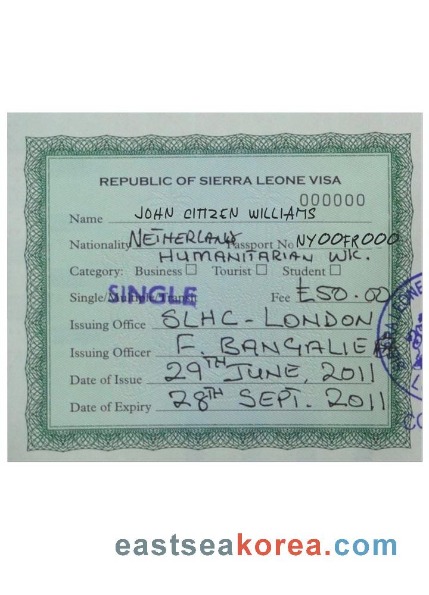 REPUBLIC OF SIERRA LEONE VISA
000000
Name JOHN CITIZEN WILLIAMS
Nationality NETHERLAND Passport No NY00FR000
HUMANITARIAN WK.
Category: Business Tourist Student
Single/Multiple/Transit SINGLE Fee £50.00
Issuing Office SLHC-LONDON
Issuing Officer F. BANGALIE
Date of Issue 29TH JUNE, 2011
Date of Expiry 28TH SEPT. 2011
eastseakorea.com